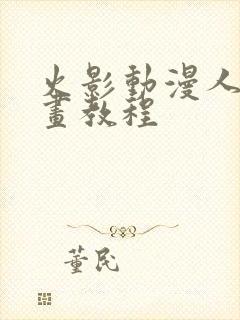 火影動漫人
畫教程
董民